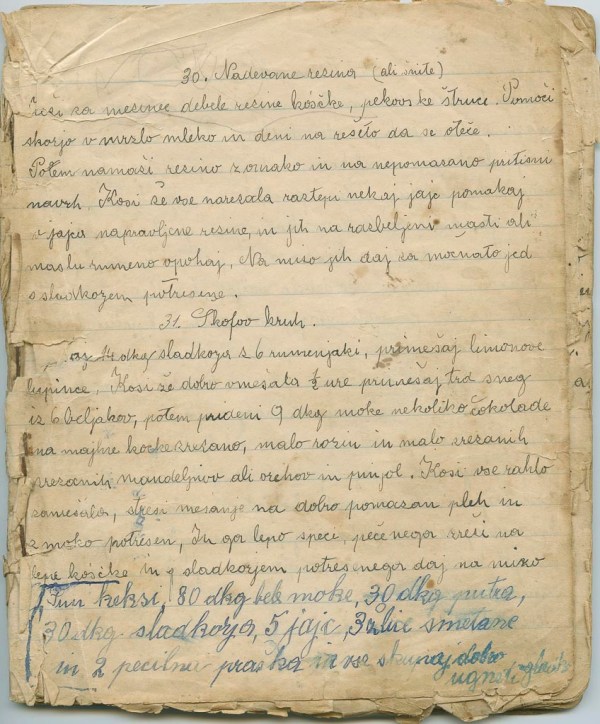 30. Nadevane rezina (ali snite)
za mesinec debele resine kóščke, pekovske štruce. Pomoči
skorjo v mrzlo mleko in deni na rešeto da se oteče.
Potem namaži resino z omako in na nepomazano pritisni
navrh. Kosi še vse naresala raztepi nekaj jajc pomakaj
v jajca napravljene resine, in jih na razbeljeni masti ali
maslu rumeno opohaj, Na mizo jih daj za močnato jed
s sladkozem potresene.
31. Škofov kruh.
14 dkg sladkoza s 6 rumenjaki, primešaj limonove
lupince. Kosi že dobro vmešala ½ ure primešaj trd sneg
iz 6 beljakov, potem prideni 9 dkg moke nekoliko čokolade
na majhne kocke zrezano, malo rozin in malo zrezanih
zrezanih mandeljnov ali orehov in punjol. Kosi vse rahlo
zamešala, stresi mesanje na dobro pomazan pleh in
z moko potresen, In ga lepo speci, pečenega zreži na
lepe kóščke in s sladkorjem potresenega daj na mizo
keksi, 80 dkg bele moke, 30 dkg putra,
30 dkg sladkorja, 5 jajc, 3 žlice smetane
in 2 pecilna praška in vse skupaj dobro
ugneti